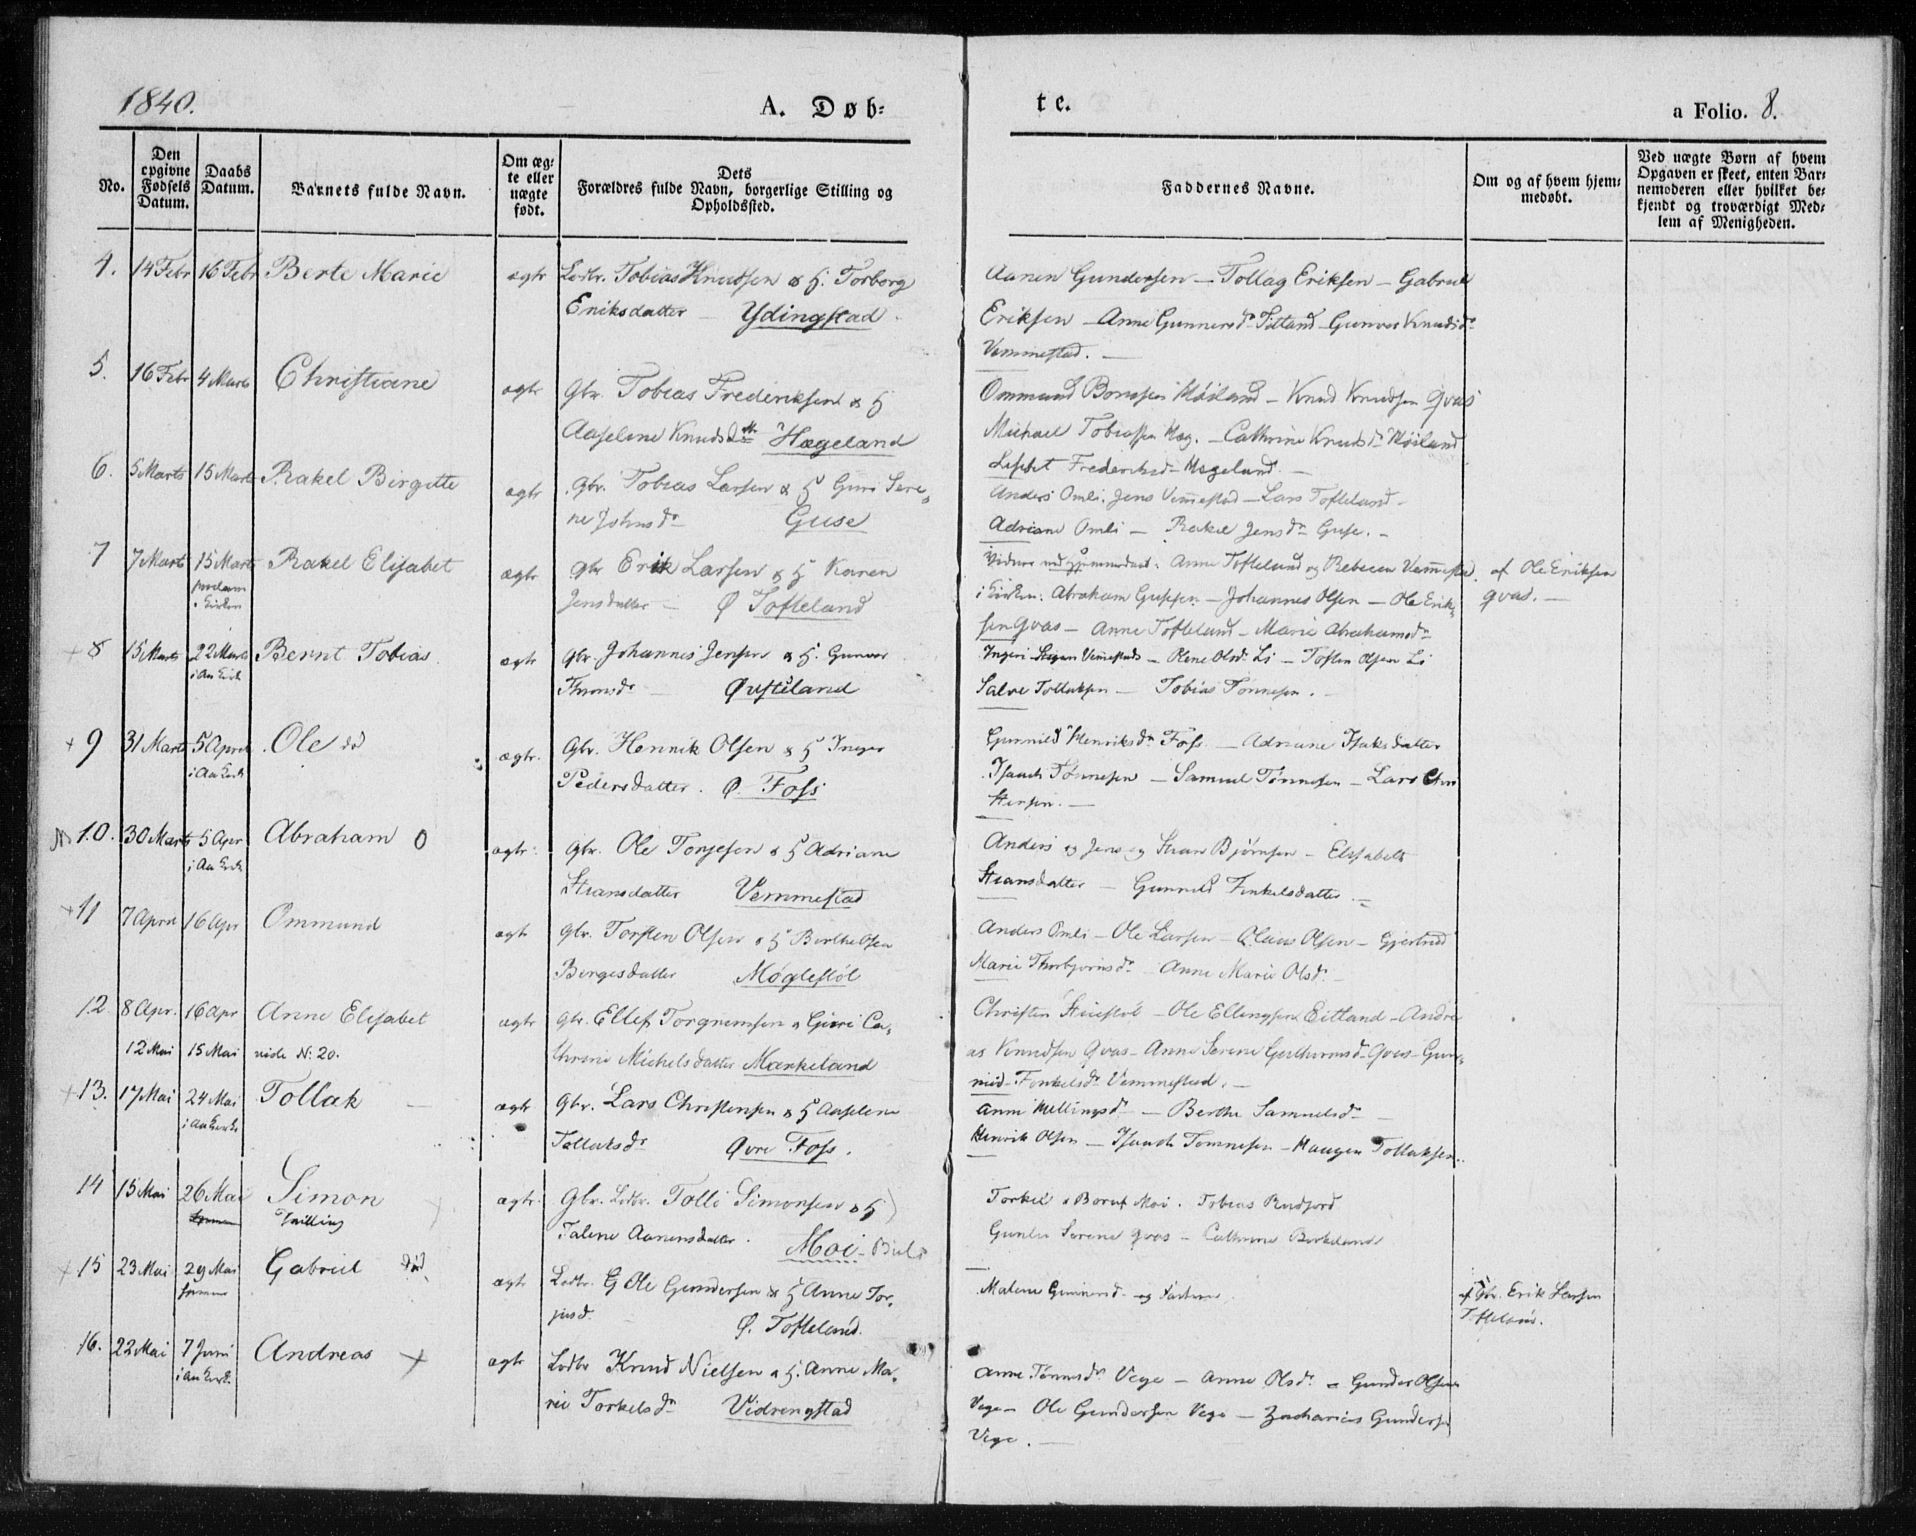 1840.
A. Døb=
te.
a Folio. 8.
No.
Den opgivne Fødsels Datum.
Daabs Datum.
Barnets fulde Navn.
Om ægte eller uægte født.
Dets Forældres fulde Navn, borgerlige Stilling og Opholdssted.
Faddernes Navne.
Om og af hvem hjemmedøbt.
Ved uægte Børn af hvem Opgaven er skeet, enten Barnemoderen eller hvilket bekjendt og troværdigt Medlem af Menigheden.
4. 14 Febr 16 Febr Berte Marie ægte Ledbr. Tobias Knudsen & H. Torborg
Eriksdatter – Ydingstad.
Aanen Gundersen – Tollag Eriksen – Gabriel
Eriksen – Anne Gunnersd. – Gunvor Knudsd.
Vemmestad. –
5. 16 Febr 4 Marts Christiane ægte Gbr. Tobias Frederiksen & H
Aaselene Knudsd. Hægeland
Ommund Møiland – Knud Knudsen Qvas
Michael Tobiassen Hæg. – Cathrine Knudsd. Møiland
Frederiksd. Hægeland. –
6. 5 Marts 15 Marts Rakel Birgitte ægte Gbr. Tobias Larsen & H Guri Sere=
ne Johnsd. Guse
Anders Omli. Jens Vemmestad – Lars Tofteland –
Adriane Omli – Rakel Jensd. Guse. –
7 7 Marts 15 Marts Rakel Elisabet ægte Gbr Erik Larsen & H Karen
Jensdatter – Ø Tofteland
Vidner ved Hjemmedaab: Anne Tofteland og Rebecca Vemmestad. af Ole Eriksen
i Kirken: Abraham – Johannes Olsen – Ole Erik= Qvas. –
sen Qvas – Anne Tofteland – Marie Abrahamsd.
+ 8 15 Marts 22 Marts Bernt Tobias. ægte Gbr. Johannes Jensen & H. Gunvor
i Aa Kirk
– Øvfteland
Ingeri Vemmestad – Olsd. Li – Olsen Li
Salve Tollaksen – Tobias Tønnesen. –
+ 9 31 Marts 5 April Ole død ægte. Gbr. Henrik Olsen & H Inger
i Aa Kirk
Pedersdatter. Ø. Foss
Gunnild Henriksd. Foss – Adriane Isaksdatter
Isaach Tønnesen – Samuel Tønnesen – Lars Chri
stensen. –
10. 30 Marts 5 Apr Abraham O ægte. Gbr. Ole Torjesen & H Adriane
i Aa Kirk
Stiansdatter Vemmestad
Anders og Jens og Stian Bjørnsen – Elisabeth
Stiansdatter – Gunnild Finkelsdatter. –
+ 11 7 April 16 Apr Ommund ægte Gbr. Torsten Olsen & H Berthe Olsen
Børgesdatter Møglestøl
Anders Omli – Ole Larsen – Olaus Olsen – Gjertrud
Marie Thorbjørnsd. Anne Marie Olsd. –
12 8 Apr. 16 Apr Anne Elisabet ægte Gbr. Ellef Torgrimsen & Guri Ca=
12 Mai 15 Mai vide N: 20.
thrine Michelsdatter Mankeland
Christen – Ole Ellingsen Eitland – Andre
as Knudsen Qvas – Anne Serene Gutthormsd. Qvas – Gun=
nild Finkelsd. Vemmestad. –
+ 13. 17 Mai 24 Mai Tollak – ægte Gbr. Lars Christensen & H Aaselene
i Aa Kirke
Tollaksd. Øvre Foss.
Anne Mellingsd. – Berthe Samuelsd. –
Henrik Olsen – Isaach Tønnesen – Haagen Tollaksen.
14 15 Mai 26 Mai Simon + ægte Gbr. Ledbr. Tolli Simonsen & H
Tvilling
Talene Aanensdatter. Moi –
Torkel & Moi. Tobias Rudjord
Gunild Serene Qvas – Cathrine Birkeland
+ 15 23 Mai 29 Mai Gabriel død ægte Ledbr. G Ole Gundersen & H Anne Tor=
hjemme
jusd. Ø. Tofteland.
Malene Gunnersd. og af Gbr. Erik Larsen
Tofteland.
16. 22 Mai 7 Juni Andreas + ægte Ledbr Knud Nielsen & H. Anne Ma=
i Aa Kirk.
rie Torkelsd. Vidringstad
Anne Tønnesd. Vege – Anne Olsd. – Gunder Olsen
Vege – Ole Gundersen Vege – Zacharias Gundersen
Vege. –